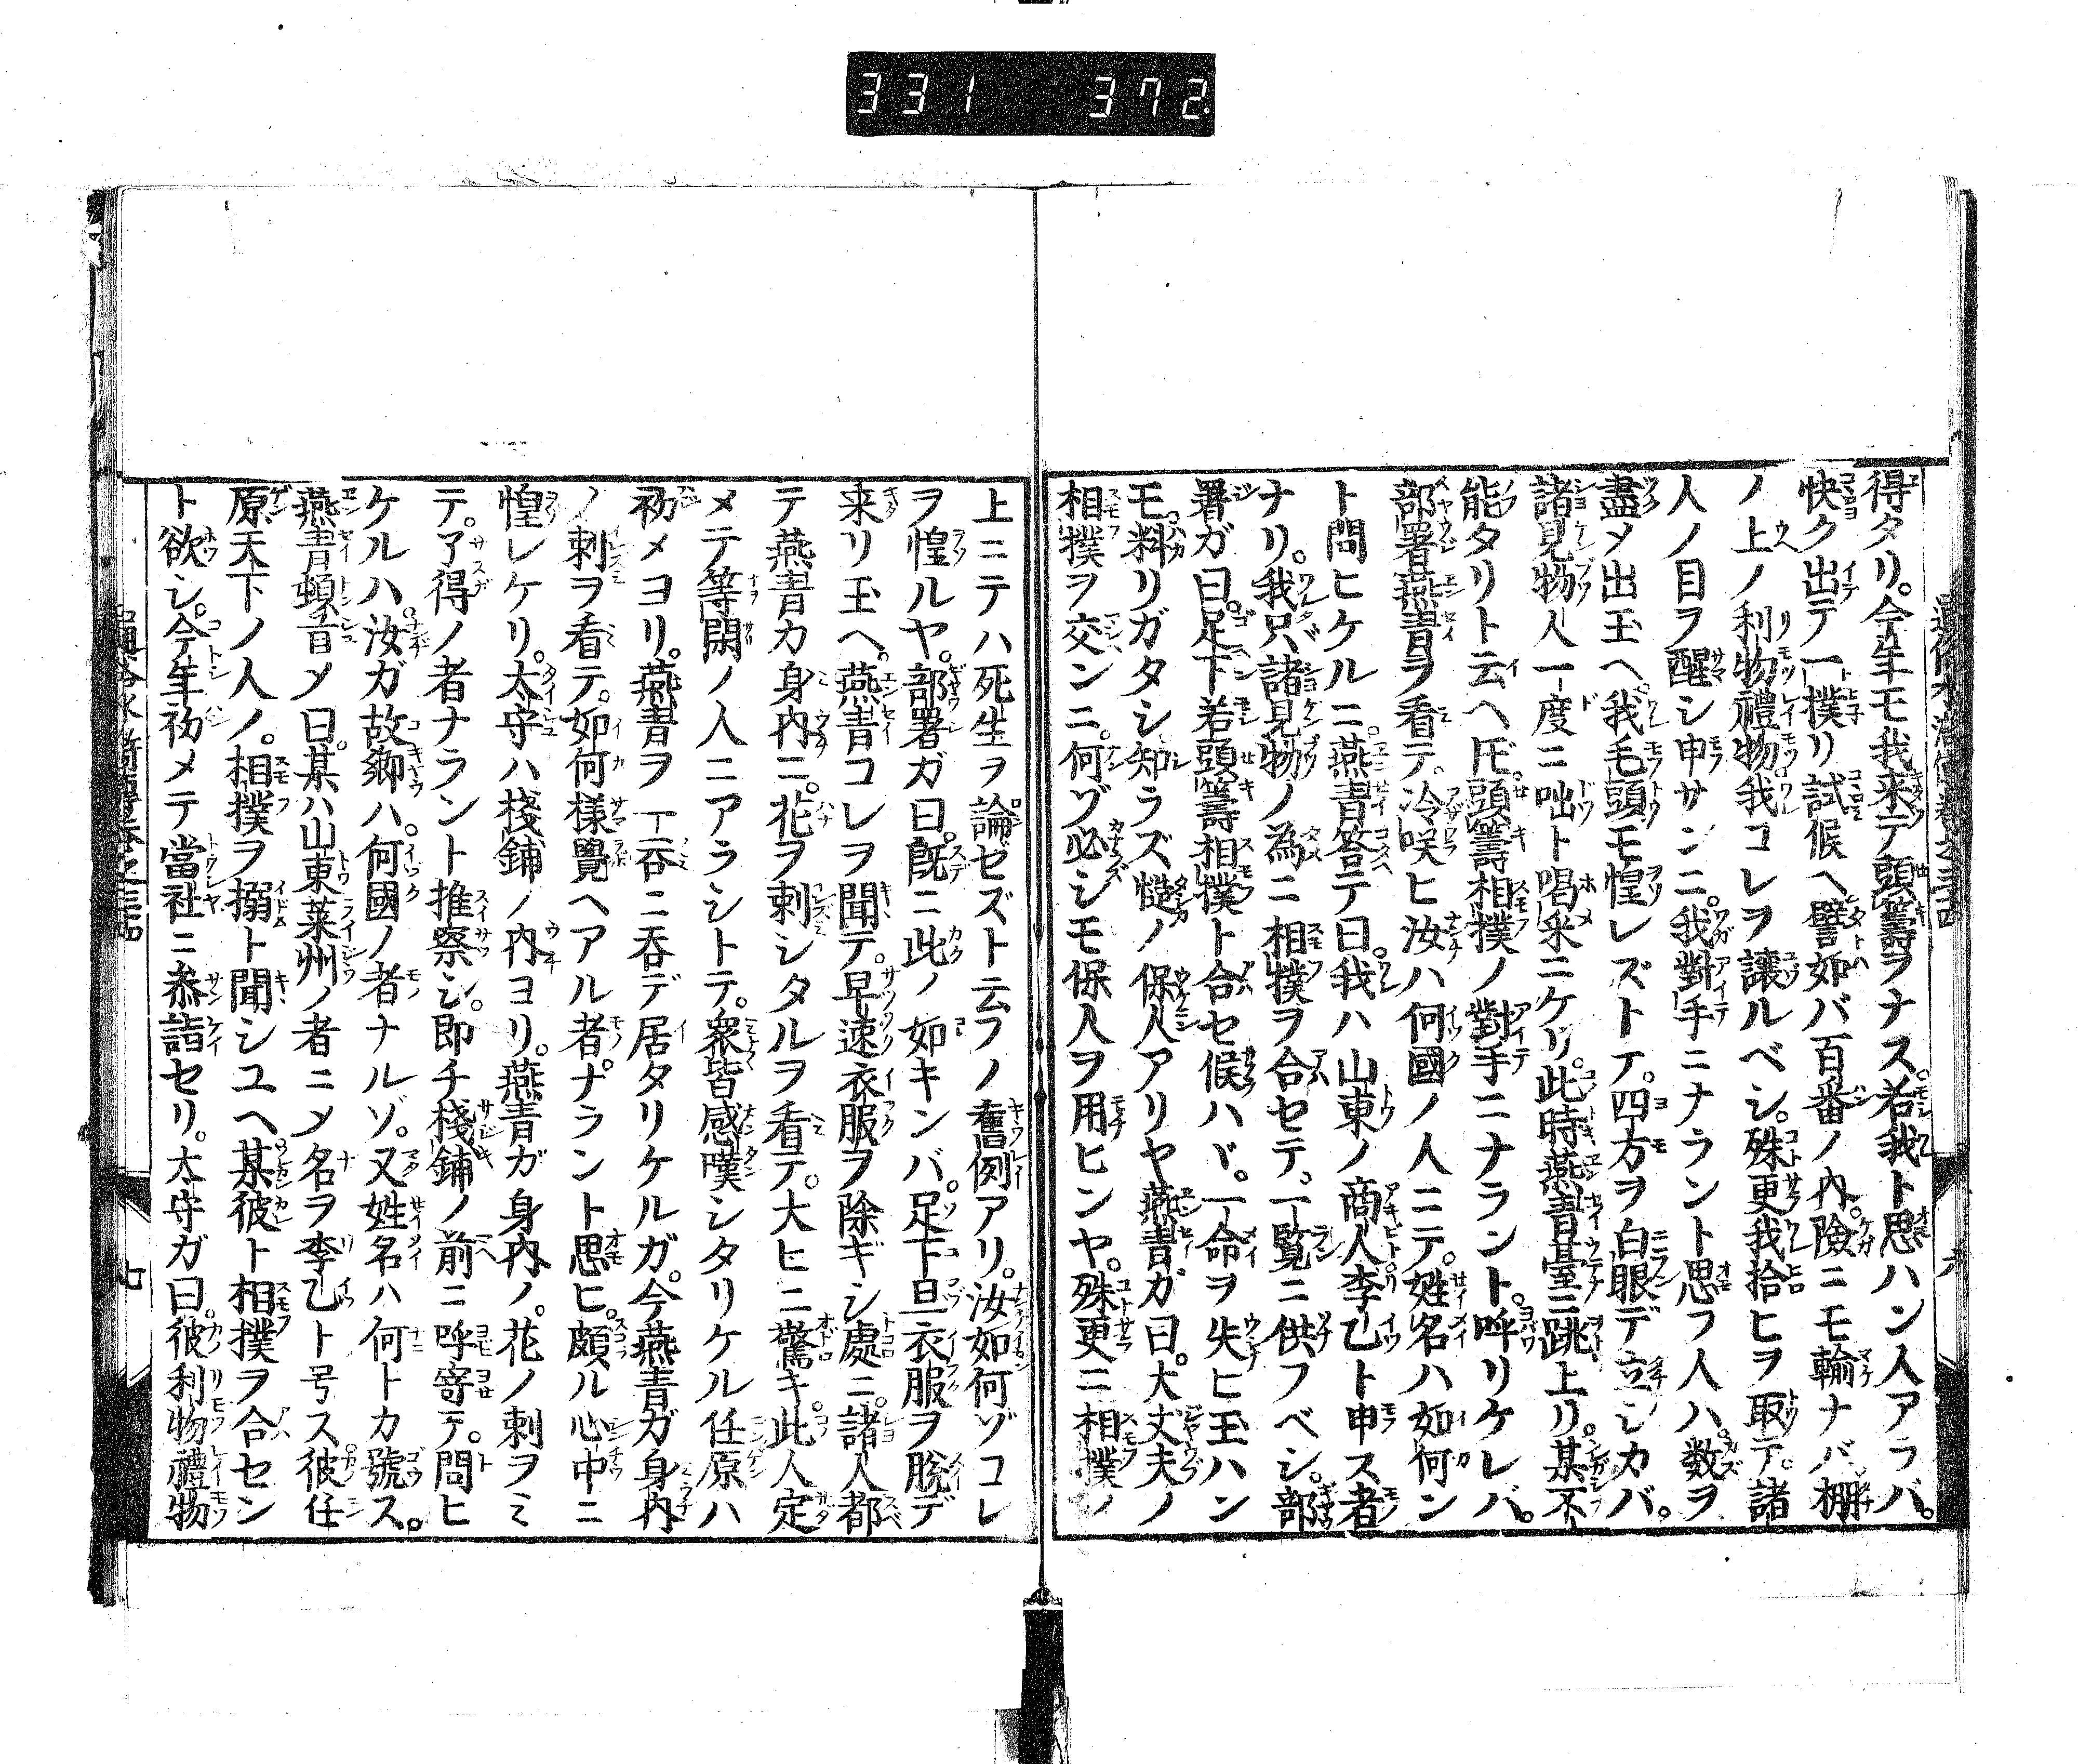 331 372.
得タリ。今年モ我来テ頭籌ヲナス。若我ト思ハン人アラバ。
快ク出テ一撲リ試候ヘ譬如バ百番ノ内。險ニモ輸ナバ棚
ノ上ノ利物禮物我コレヲ讓ルベシ。殊更我拾ヒヲ取テ。諸
人ノ目ヲ醒シ申サンニ。我對手ニナラント思フ人ハ。数ヲ
盡メ出玉ヘ我毛頭モ惶レズトテ。四方ヲ白眼デ立シカバ。
諸見物人一度ニ咄ト喝采ニケリ。此時燕青臺ニ跳上リ。某不
能タリト云ヘ𪜈。頭籌相撲ノ對手ニナラント。呼リケレバ。
部署燕青ヲ看テ。冷咲ヒ汝ハ何國ノ人ニテ。姓名ハ如何ン
ト問ヒケルニ。燕青答テ曰。我ハ山東ノ商人。李乙ト申ス者
ナリ。我只諸見物ノ為ニ相撲ヲ合セテ。一覧ニ供フベシ。部
署ガ曰。足下若頭籌相撲ト合セ候ハヾ。一命ヲ失ヒ玉ハン
モ。料リガタシ知ラズ慥ノ保人アリヤ燕青ガ曰。大丈夫ノ
相撲ヲ交ンニ。何ゾ必シモ保人ヲ用ヒンヤ。殊更ニ相撲ノ
上ニテハ死生ヲ論ゼズト云フノ舊例アリ。汝如何ゾコレ
ヲ惶ルヤ。部署ガ曰。既ニ此ノ如キンバ。足下且衣服ヲ脱デ
来リ玉ヘ。燕青コレヲ聞テ。早速衣服ヲ除ギシ處ニ。諸人都
テ燕青カ身内ニ。花ヲ刺シタルヲ看テ。大ヒニ驚キ。此人定
メテ等閑ノ人ニアラシトテ。衆皆感嘆シタリケル任原ハ
初メヨリ。燕青ヲ一呑ニ呑デ居タリケルガ。今燕青ガ身内
ノ刺ヲ看テ。如何樣覺ヘアル者ナラント思ヒ。頗ル心中ニ
惶レケリ。太守ハ棧鋪ノ内ヨリ。燕青ガ身内ノ。花ノ刺ヲミ
テ。了得ノ者ナラント推察シ。即チ棧鋪ノ前ニ呼寄テ。問ヒ
ケルハ。汝ガ故鄉ハ。何國ノ者ナルゾ。又姓名ハ何トカ號ス。
燕青頓首メ曰。某ハ山東萊州ノ者ニメ名ヲ李乙ト号ス彼任
原天下ノ人ノ。相撲ヲ搦ト聞シユヘ。某彼ト相撲ヲ合セン
ト欲シ。今年初メテ當社ニ叅詣セリ。太守ガ曰。彼利物禮物
七